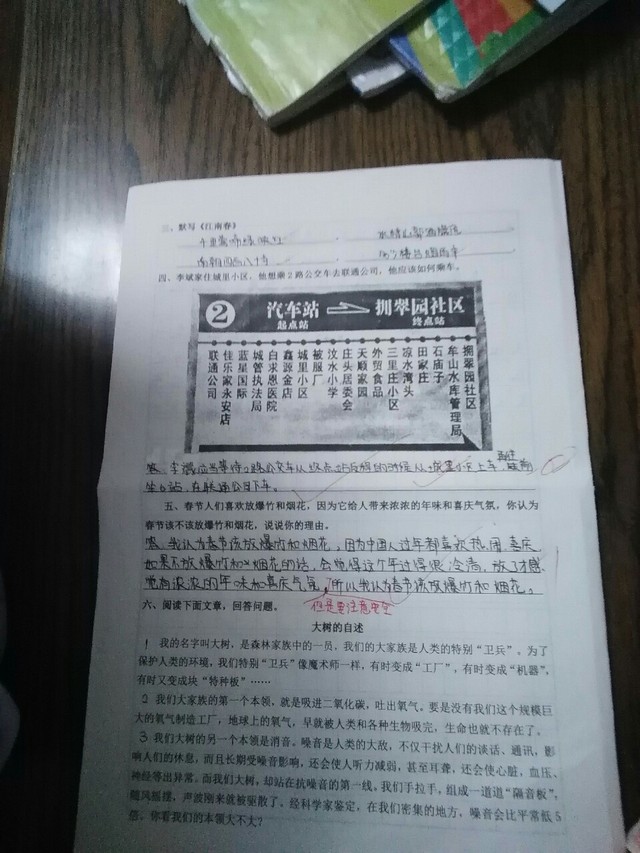 三、默写《江南春》
千里莺啼绿映红 水村山郭酒旗风
南朝四百八十寺 多少楼台烟雨中
四、李斌家住城里小区，他想乘2路公交车去联通公司，他应该如何乘车。
2 汽车站 拥翠园社区
起点站 终点站
联通公司
佳乐家永安店
蓝星国际
城管执法局
白求恩医院
鑫源金店
城里小区
被服厂
汶水小学
庄头居委会
天顺家园
外贸食品
三里庄小区
凉水湾头
田家庄
石庙子
车山水库管理局
拥翠园社区
答：李斌应当等待2路公交车从终点站返程的时候从城里小区上车，
坐6站，在联通公司下车。
五、春节人们喜欢放爆竹和烟花，因为它给人带来浓浓的年味和喜庆气氛，你认为
春节该不该放爆竹和烟花，说说你的理由。
答：我认为春节该放爆竹和烟花，因为中国人过年都喜欢热闹、喜庆
如果不放爆竹和烟花的话，会觉得这个年过得很冷清，放了才感
觉有浓浓的年味和喜庆气氛，所以我认为春节该放爆竹和烟花。
但是要注意安全
六、阅读下面文章，回答问题。
大树的自述
1 我的名字叫大树，是森林家族中的一员。我们的大家族是人类的特别“卫兵”。为了
保护人类的环境，我们特别“卫兵”像魔术师一样，有时变成“工厂”，有时变成“机器”，
有时又变成块“特种板”……
2 我们大家族的第一个本领，就是吸进二氧化碳，吐出氧气。要是没有我们这个规模巨
大的氧气制造工厂，地球上的氧气，早就被人类和各种生物吸完，生命也就不存在了。
3 我们大树的另一个本领是消音。噪音是人类的大敌，不仅干扰人们的谈话、通讯，影
响人们的休息，而且长期受噪音影响，还会使人听力减弱，甚至耳聋，还会使心脏、血压、
神经等出异常。而我们大树，却站在抗噪音的第一线。我们手拉手，组成一道道“隔音板”，
随风摇摆，声波刚来就被驱散了。经科学家鉴定，在我们密集的地方，噪音会比平常低5
倍。你看我们的本领大不大？